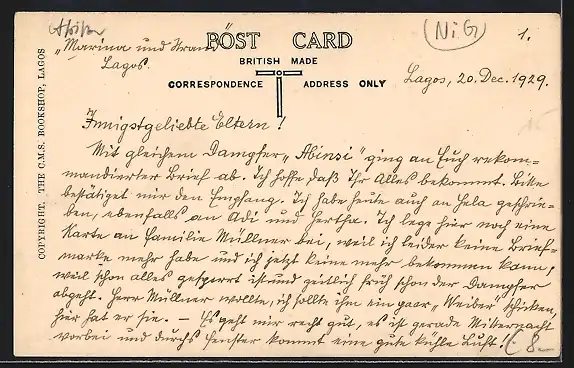 Abisi
(Ni.G)
1.
„Marina und Strand,
Lagos.
POST CARD
BRITISH MADE
CORRESPONDENCE ADDRESS ONLY
COPYRIGHT, THE C.M.S. BOOKSHOP, LAGOS
Lagos, 20. Dec. 1929.
Innigstgeliebte Eltern!
Mit gleichem Dampfer „Abinsi" ging an Euch rekom=
mandierter Brief ab. Ich hoffe, daß Ihr Alles bekommt. Bitte
bestätiget mir den Empfang. Ich habe heute auch an Hela geschrie-
ben, ebenfalls an Adi und Hertha. Ich lege hier noch eine
Karte an Familie Müllner bei, weil ich leider keine Brief=
marke mehr habe und ich jetzt keine mehr bekommen kann,
weil schon alles gesperrt ist und zeitlich früh schon der Dampfer
abgeht. Herr Müllner wollte, ich sollte ihm ein paar „Weiber" schicken,
hier hat er sie. — Es geht mir recht gut, es ist gerade Mitternacht
vorbei und durchs Fenster kommt eine gute kühle Luft!